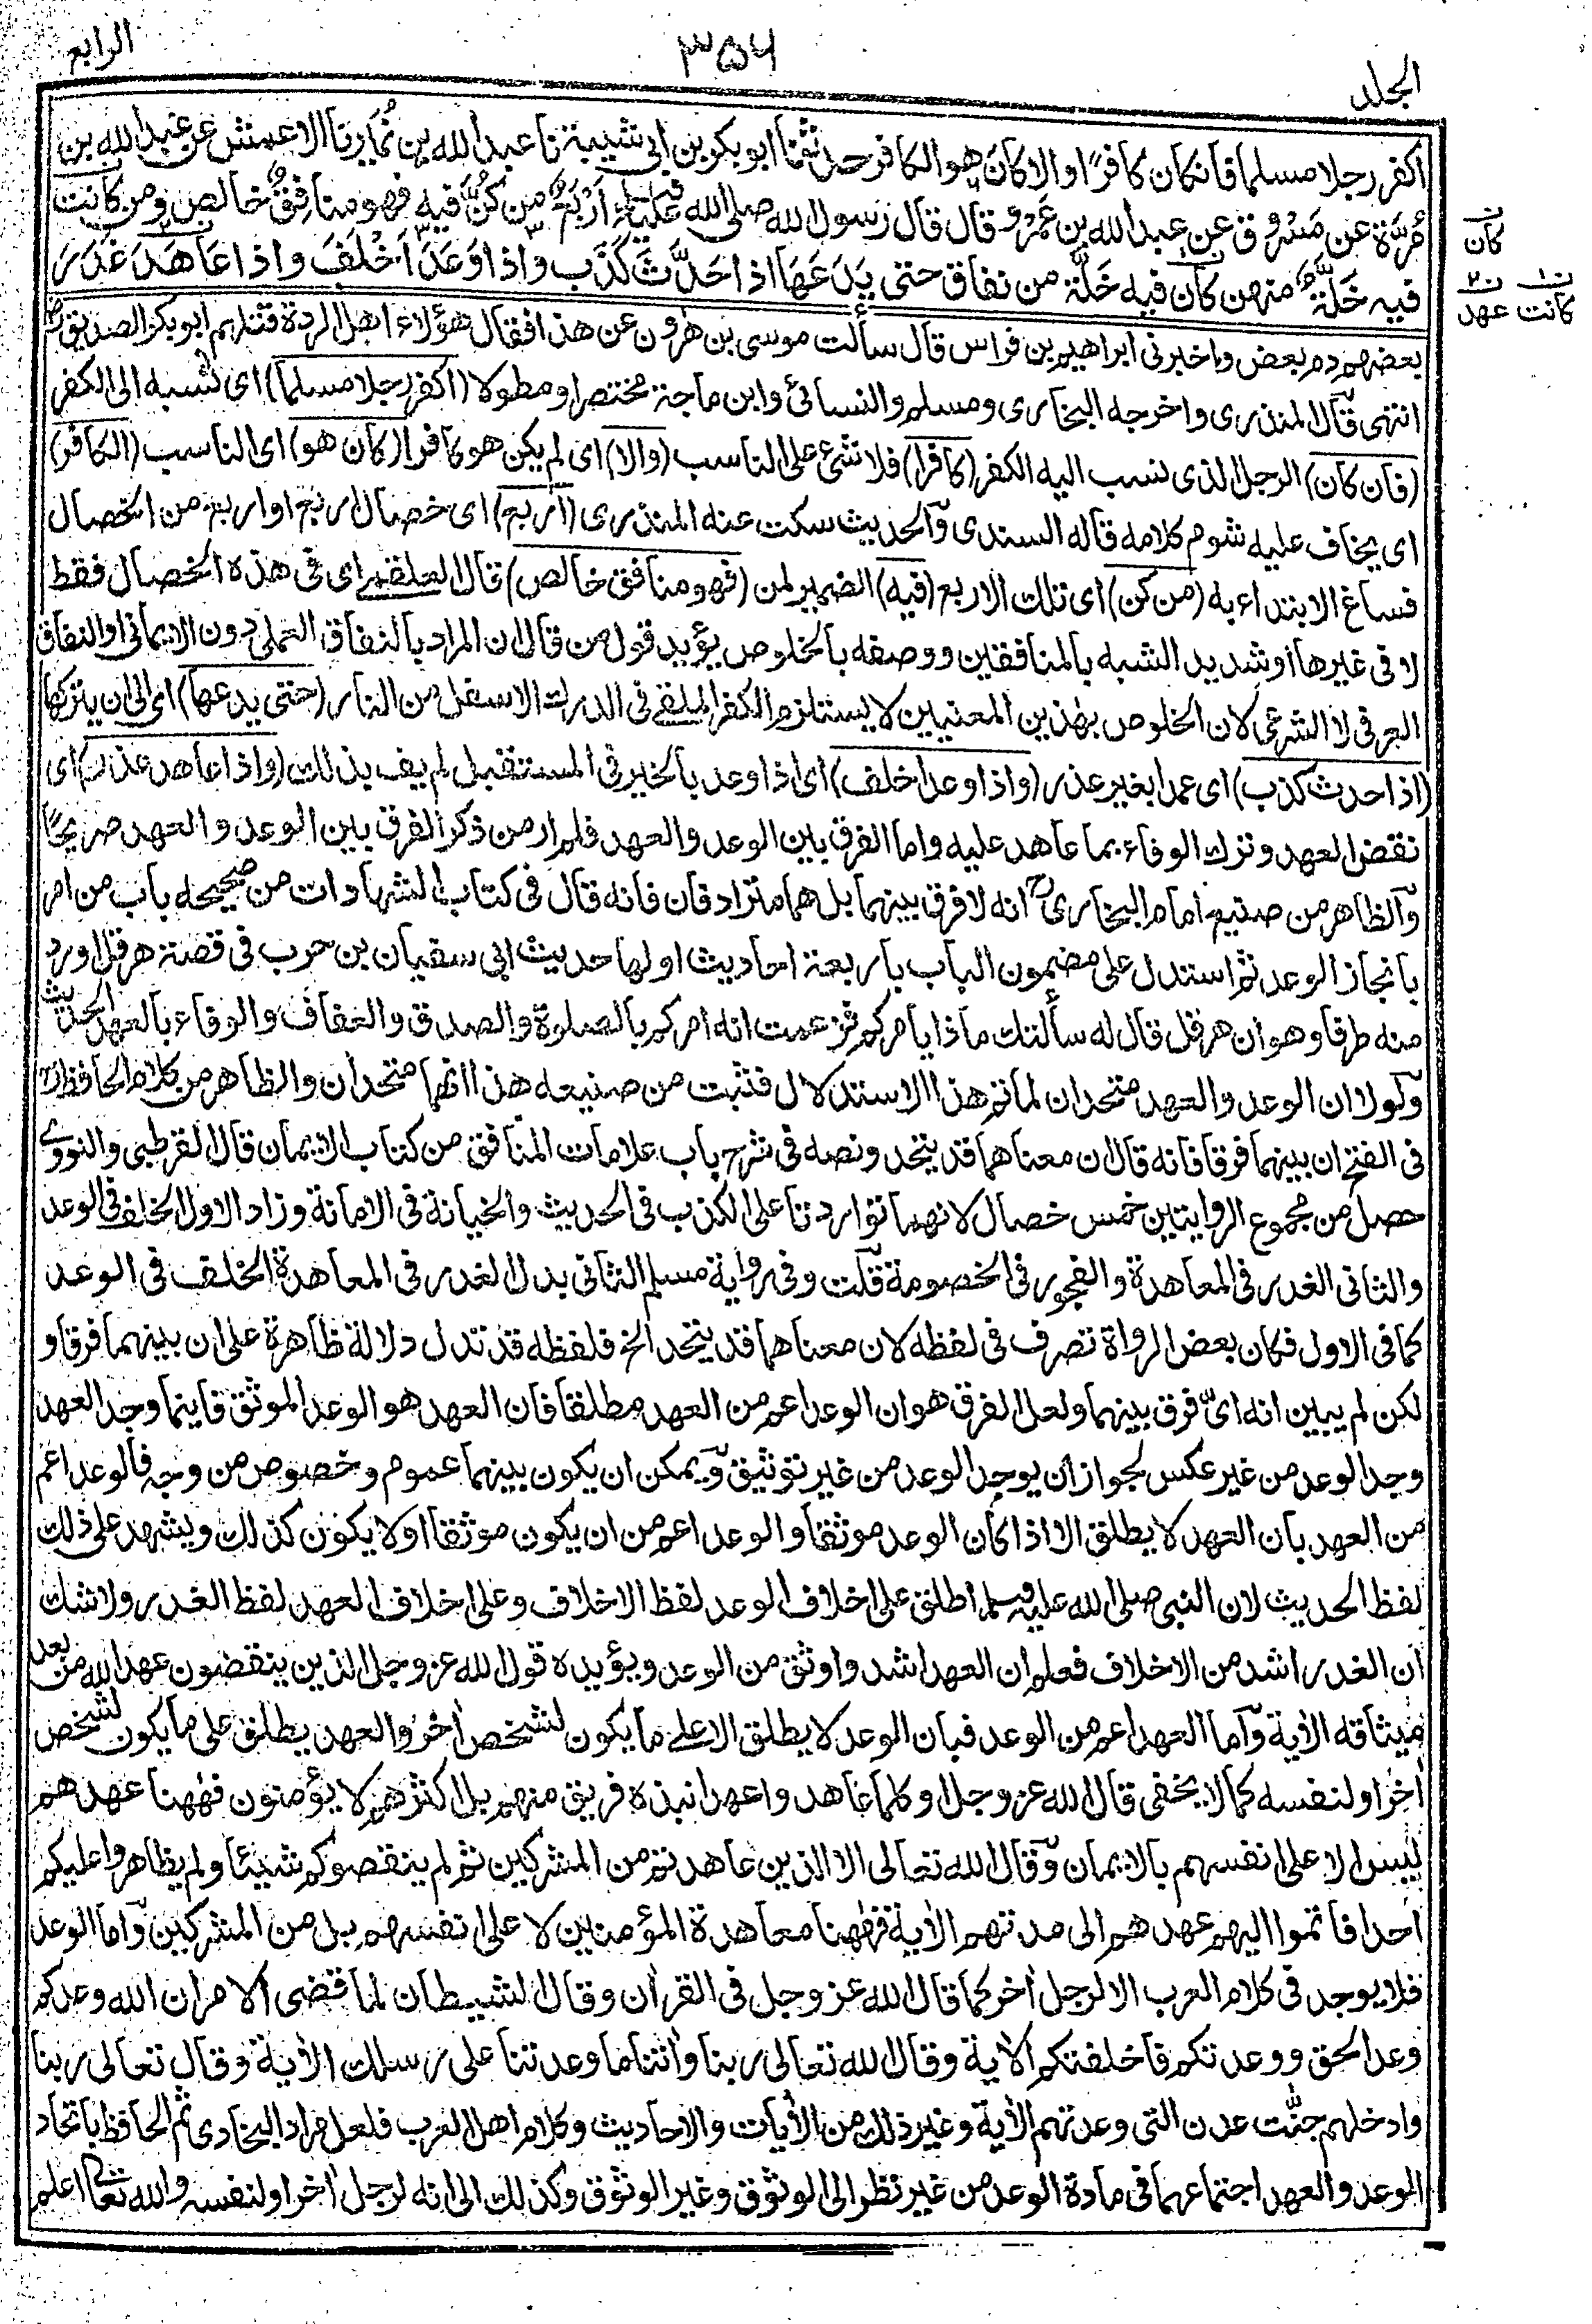 الجلد
٣٥٦
الرابع
اكفر رجلا مسلما فان كان كافرًا والا كان هو الكافر حدثنا ابو بكر بن ابى شيبة نا عبد الله بن نُمَير نا الاعمش عن عبد الله بن
مُرَّة عن مَسْرُوق عن عبد الله بن عَمْرو قال قال رسول الله صلى الله عليه وسلم أرْبَعٌ من كُنَّ فيه فهو منافِقٌ خالص ومن كانت
فيه خَلَّةٌ منهن كان فيه خَلَّة من نفاق حتى يَدَعَهَا اذا حَدَّثَ كَذَبَ واذا وَعَدَ اَخْلَفَ واذا عَاهَدَ غَدَرَ
ن كان
ن١ كانت ن٢ عهد
بعضهم دم بعض واخبرنى ابراهيم بن فراس قال سألت موسى بن هٰرون عن هذا فقال هؤلاء اهل الردة قتلهم ابو بكر الصديق رض
انتهى قال المنذرى واخرجه البخارى ومسلم والنسائى وابن ماجة مختصرا ومطولا (اكفر رجلا مسلما) اى نسبه الى الكفر
(فان كان) الرجل الذى نسب اليه الكفر (كافرا) فلا شئ على الناسب (والا) اى لم يكن هو كافرا (كان هو) اى الناسب (الكافر)
اى يخاف عليه شوم كلامه قاله السندى والحديث سكت عنه المنذرى (اربع) اى خصال اربع او اربع من الخصال
فساغ الابتداء به (من كن) اى تلك الاربع (فيه) الضمير لمن (فهو منافق خالص) قال العلقمى اى فى هذه الخصال فقط
لا فى غيرها او شديد الشبه بالمنافقين ووصفه بالخلوص يؤيد قول من قال ان المراد بالنفاق العملى دون الايمانى او النفاق
العرفى لا الشرعى لان الخلوص بهذين المعنيين لا يستلزم الكفر الملقى فى الدرك الاسفل من النار (حتى يدعها) اى الى ان يتركها
(اذا حدث كذب) اى عمدا بغير عذر (واذا وعد اخلف) اى اذا وعد بالخير فى المستقبل لم يف بذلك (واذا عاهد غدر) اى
نقض العهد وترك الوفاء بما عاهد عليه واما الفرق بين الوعد والعهد فلم ار من ذكر الفرق بين الوعد والعهد صريحًا
والظاهر من صنيع امام البخارى رح انه لا فرق بينهما بل هما مترادفان فانه قال فى كتاب الشهادات من صحيحه باب من امر
بانجاز الوعد ثم استدل على مضمون الباب باربعة احاديث اولها حديث ابى سفيان بن حرب فى قصة هرقل اورد
منه طرفا وهو ان هرقل قال له سألتك ماذا يامركم فزعمت انه امركم بالصلوة والصدق والعفاف والوفاء بالعهد الحديث
ولولا ان الوعد والعهد متحدان لما تم هذا الاستدلال فثبت من صنيعه هذا انهما متحدان والظاهر من كلام الحافظ رح
فى الفتح ان بينهما فرقا فانه قال ان معناهما قد يتحد ونصه فى شرح باب علامات المنافق من كتاب الايمان قال القرطبى والنووى
حصل من مجموع الروايتين خمس خصال لانهما تواردتا على الكذب فى الحديث والخيانة فى الامانة وزاد الاول الخلف فى الوعد
والثانى الغدر فى المعاهدة والفجور فى الخصومة قلت وفى رواية مسلم الثانى بدل الغدر فى المعاهدة الخلف فى الوعد
كما فى الاول فكان بعض الرواة تصرف فى لفظه لان معناهما قد يتحد الخ فلفظه قد تدل دلالة ظاهرة على ان بينهما فرقا و
لكن لم يبين انه اىّ فرق بينهما ولعل الفرق هو ان الوعد اعم من العهد مطلقا فان العهد هو الوعد الموثق فاينما وجد العهد
وجد الوعد من غير عكس لجواز ان يوجد الوعد من غير توثيق ويمكن ان يكون بينهما عموم وخصوص من وجه فالوعد اعم
من العهد بان العهد لا يطلق الا اذا كان الوعد موثقا والوعد اعم من ان يكون موثقا او لا يكون كذلك ويشهد على ذلك
لفظ الحديث لان النبى صلى الله عليه وسلم اطلق على اخلاف الوعد لفظ الاخلاف وعلى اخلاف العهد لفظ الغدر ولا شك
ان الغدر اشد من الاخلاف فعلم ان العهد اشد واوثق من الوعد ويؤيده قول الله عز وجل الذين ينقضون عهد الله من بعد
ميثاقه الاٰية واما العهد اعم من الوعد فبان الوعد لا يطلق الا على ما يكون لشخص اٰخر والعهد يطلق على ما يكون لشخص
اٰخر او لنفسه كما لا يخفى قال الله عز وجل او كلما عاهدوا عهدا نبذه فريق منهم بل اكثرهم لا يؤمنون فهٰهنا عهدهم
ليس الا على انفسهم بالايمان وقال الله تعالى الا الذين عاهدتم من المشركين ثم لم ينقصوكم شيئا ولم يظاهروا عليكم
احدا فاتموا اليهم عهدهم الى مدتهم الاٰية فهٰهنا معاهدة المؤمنين لا على انفسهم بل من المشركين واما الوعد
فلا يوجد فى كلام العرب الا لرجل اٰخر كما قال الله عز وجل فى القراٰن وقال الشيطان لما قضى الامر ان الله وعدكم
وعد الحق ووعدتكم فاخلفتكم الاٰية وقال الله تعالى ربنا واٰتنا ما وعدتنا على رسلك الاٰية وقال تعالى ربنا
وادخلهم جنّٰت عدن التى وعدتهم الاٰية وغير ذلك من الاٰيات والاحاديث وكلام اهل العرب فلعل مراد البخارى ثم الحافظ باتحاد
الوعد والعهد اجتماعهما فى مادة الوعد من غير نظر الى الوثوق وغير الوثوق وكذلك الى انه لرجل اٰخر او لنفسه والله تعالى اعلم